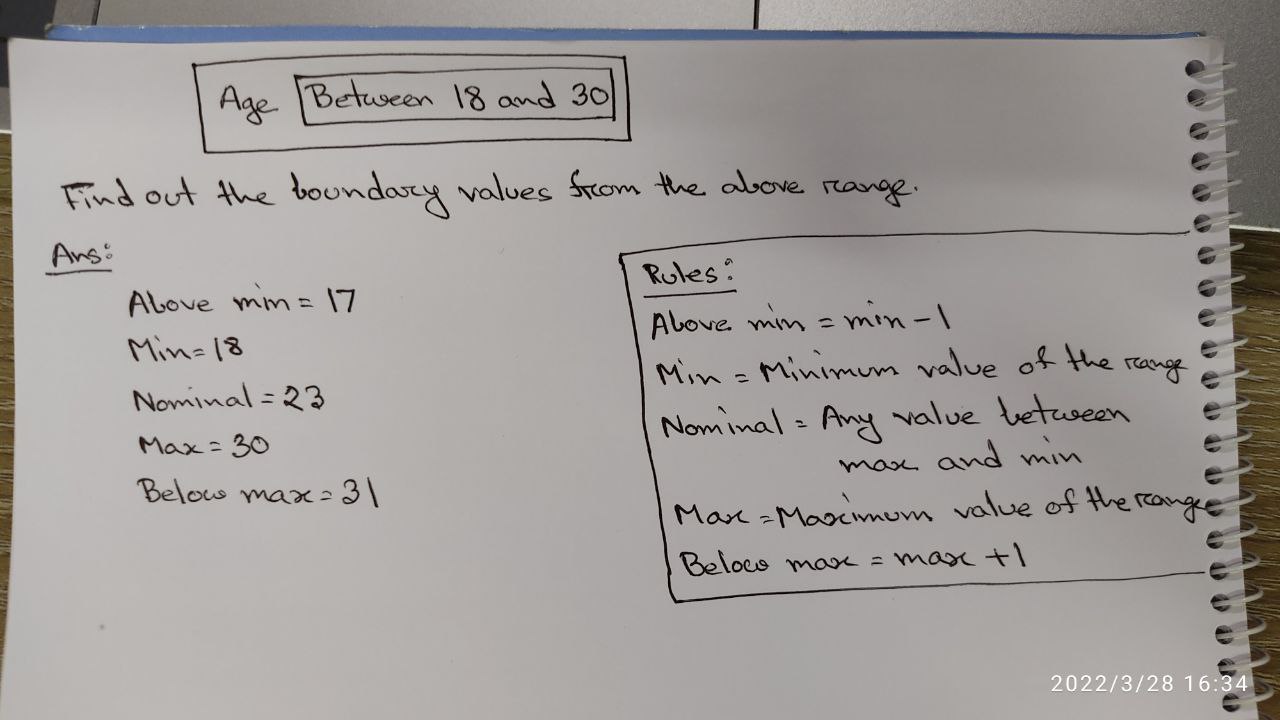 Age Between 18 and 30
Find out the boundary values from the above range.
Ans:
Above min = 17
Min = 18
Nominal = 23
Max = 30
Below max = 31
Rules:
Above min = min - 1
Min = Minimum value of the range
Nominal = Any value between
max and min
Max = Maximum value of the range
Below max = max + 1
2022/3/28 16:34